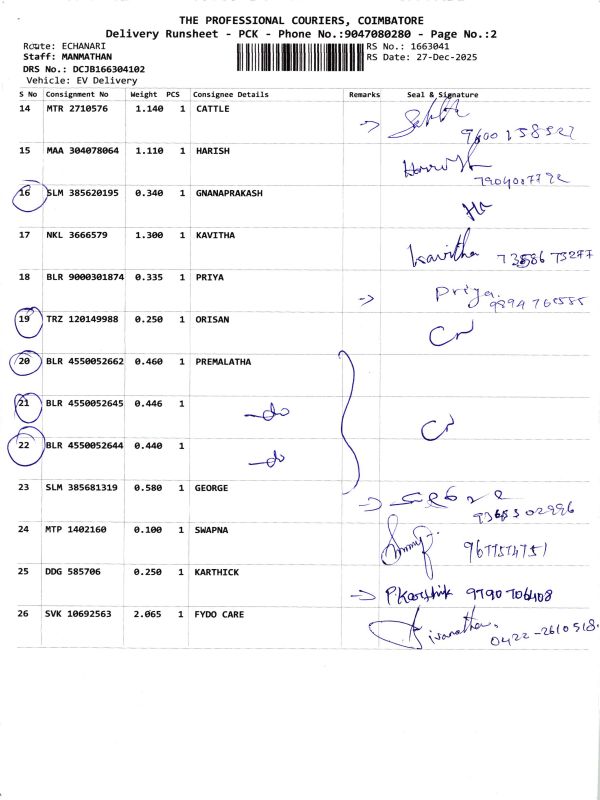 THE PROFESSIONAL COURIERS, COIMBATORE
Delivery Runsheet - PCK - Phone No.:9047080280 - Page No.:2
Route: ECHANARI RS No.: 1663041
Staff: MANMATHAN RS Date: 27-Dec-2025
DRS No.: DCJB166304102
Vehicle: EV Delivery
S No Consignment No Weight PCS Consignee Details Remarks Seal & Signature
14 MTR 2710576 1.140 1 CATTLE
15 MAA 304078064 1.110 1 HARISH
16 SLM 385620195 0.340 1 GNANAPRAKASH
17 NKL 3666579 1.300 1 KAVITHA Kavitha
18 BLR 9000301874 0.335 1 PRIYA Priya.
19 TRZ 120149988 0.250 1 ORISAN
20 BLR 4550052662 0.460 1 PREMALATHA
21 BLR 4550052645 0.446 1 -do
22 BLR 4550052644 0.440 1 -do
23 SLM 385681319 0.580 1 GEORGE
24 MTP 1402160 0.100 1 SWAPNA
25 DDG 585706 0.250 1 KARTHICK P.Karthik 9790706408
26 SVK 10692563 2.065 1 FYDO CARE 0422-2610518.